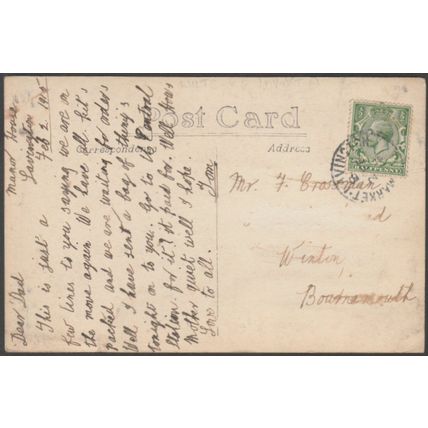 Post Card
Correspondence
Address
Manor House
Lavington
Feb 2 1915
Dear Dad
This is just a
few lines to you saying we are on
the move again We have all kit's
packed and we are waiting for orders
Well I have sent a bag of thing's
tonight on to you. Go to the Central
Station for it? it paid for. Well How's
Mother quiet well I hope.
Love to all. Tom.
Mr. F. Crossman
Winton
Bournemouth
MARKET LAVINGTON